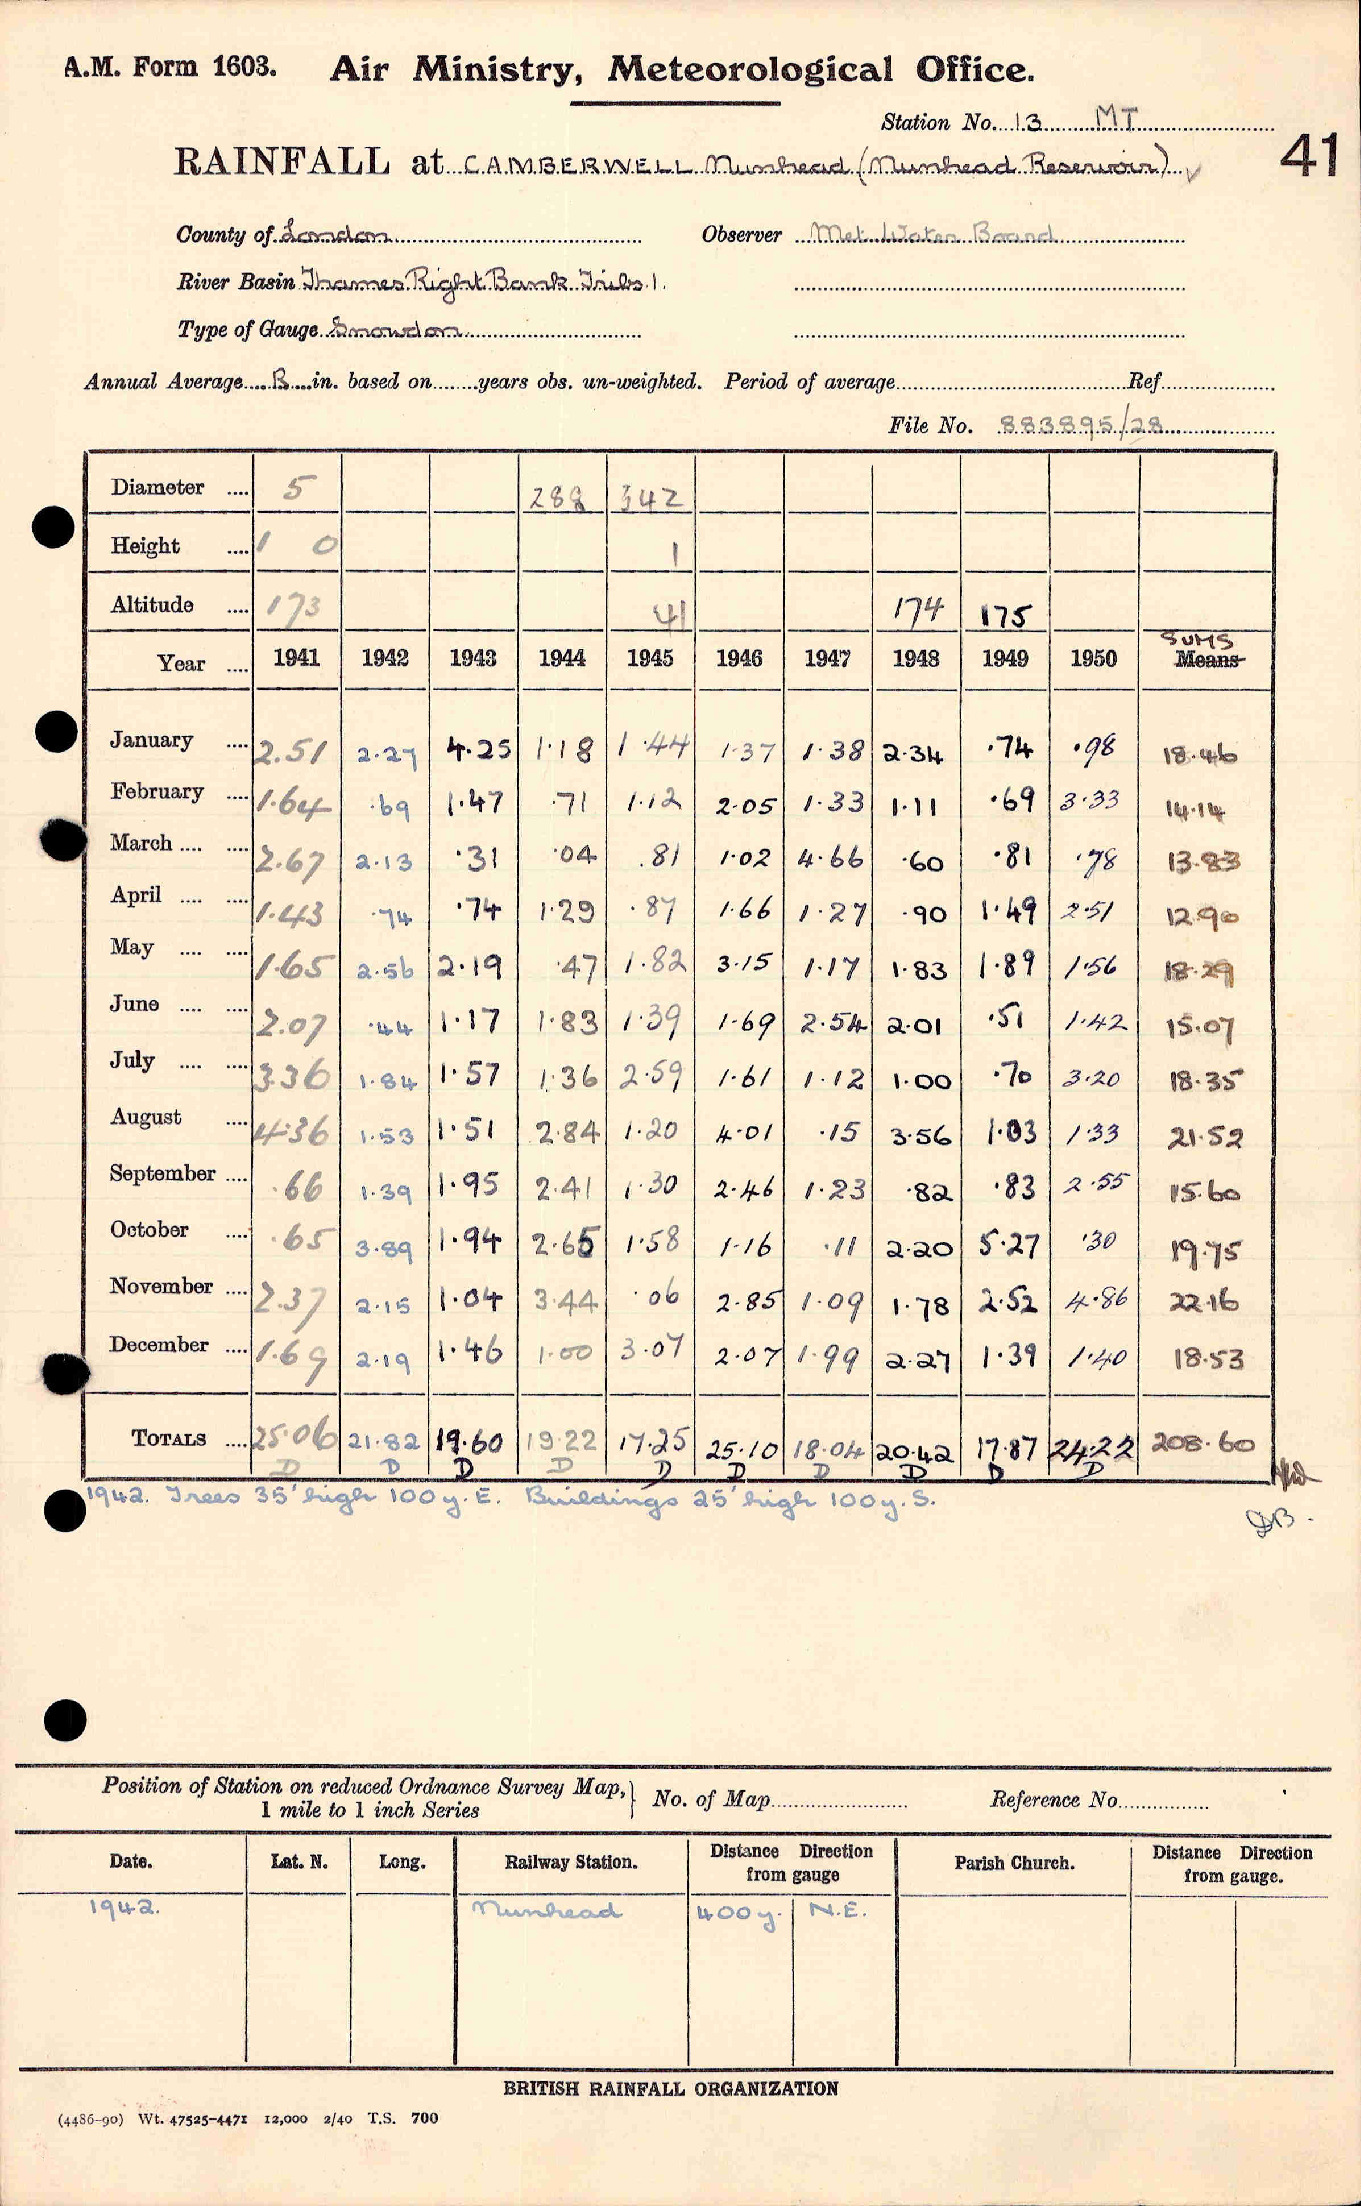 A.M. Form 1603. Air Ministry, Meteorological Office.
Station No. 13 MT
41
RAINFALL at CAMBERWELL Nunhead (Nunhead Reservoir)
County of London Observer Met. Water Board
River Basin Thames Right Bank Tribs 1.
Type of Gauge Snowdon
Annual Average B in. based on years obs. un-weighted. Period of average Ref
File No. 883895/28
Diameter 5 288 342
Height 1 0 1
Altitude 173 41 174 175
SUMS
Year 1941 1942 1943 1944 1945 1946 1947 1948 1949 1950 Means
January 2.51 2.27 4.25 1.18 1.44 1.37 1.38 2.34 .74 .98 18.46
February 1.64 .69 1.47 .71 1.12 2.05 1.33 1.11 .69 3.33 14.14
March 2.67 2.13 .31 .04 .81 1.02 4.66 .60 .81 .78 13.83
April 1.43 .74 .74 1.29 .87 1.66 1.27 .90 1.49 2.51 12.90
May 1.65 2.56 2.19 .47 1.82 3.15 1.17 1.83 1.89 1.56 18.29
June 2.07 .44 1.17 1.83 1.39 1.69 2.54 2.01 .51 1.42 15.07
July 3.36 1.84 1.57 1.36 2.59 1.61 1.12 1.00 .70 3.20 18.35
August 4.36 1.53 1.51 2.84 1.20 4.01 .15 3.56 1.03 1.33 21.52
September .66 1.39 1.95 2.41 1.30 2.46 1.23 .82 .83 2.55 15.60
October .65 3.89 1.94 2.65 1.58 1.16 .11 2.20 5.27 .30 19.75
November 2.37 2.15 1.04 3.44 .06 2.85 1.09 1.78 2.52 4.86 22.16
December 1.69 2.19 1.46 1.00 3.07 2.07 1.99 2.27 1.39 1.40 18.53
TOTALS 25.06 21.82 19.60 19.22 17.25 25.10 18.04 20.42 17.87 24.22 208.60
D D D D D D D D D D
1942. Trees 35' high 100y. E. Buildings 25' high 100y. S.
Position of Station on reduced Ordnance Survey Map, No. of Map Reference No.
1 mile to 1 inch Series
Date. Lat. N. Long. Railway Station. Distance Direction from gauge Parish Church. Distance Direction from gauge.
1942. Nunhead 400y. N.E.
BRITISH RAINFALL ORGANIZATION
(4486-90) Wt. 47525-4471 12,000 2/40 T.S. 700